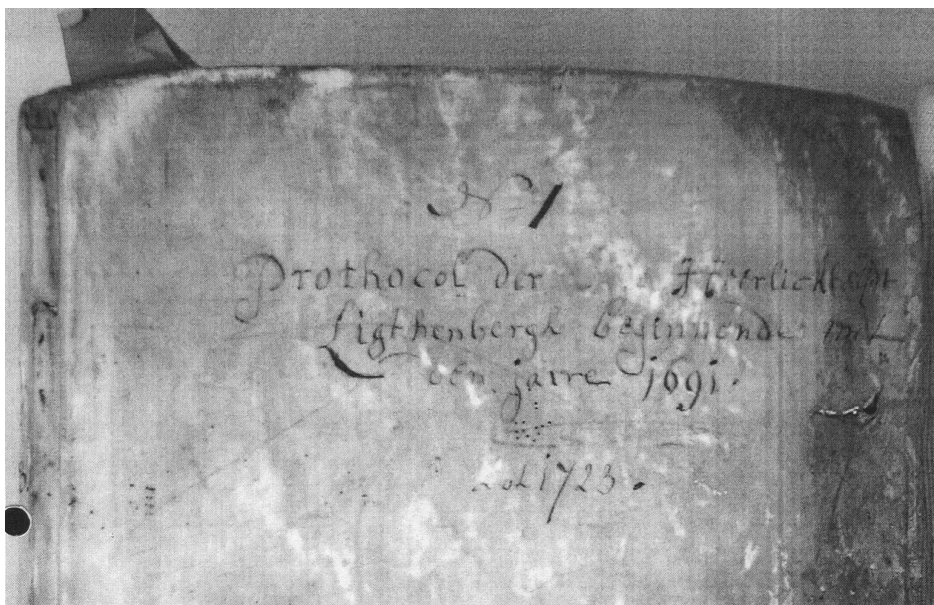 No 1
Prothocol der Heerlickheijt
Ligthenbergh beginnende met
den jaere 1691.
tot 1723.